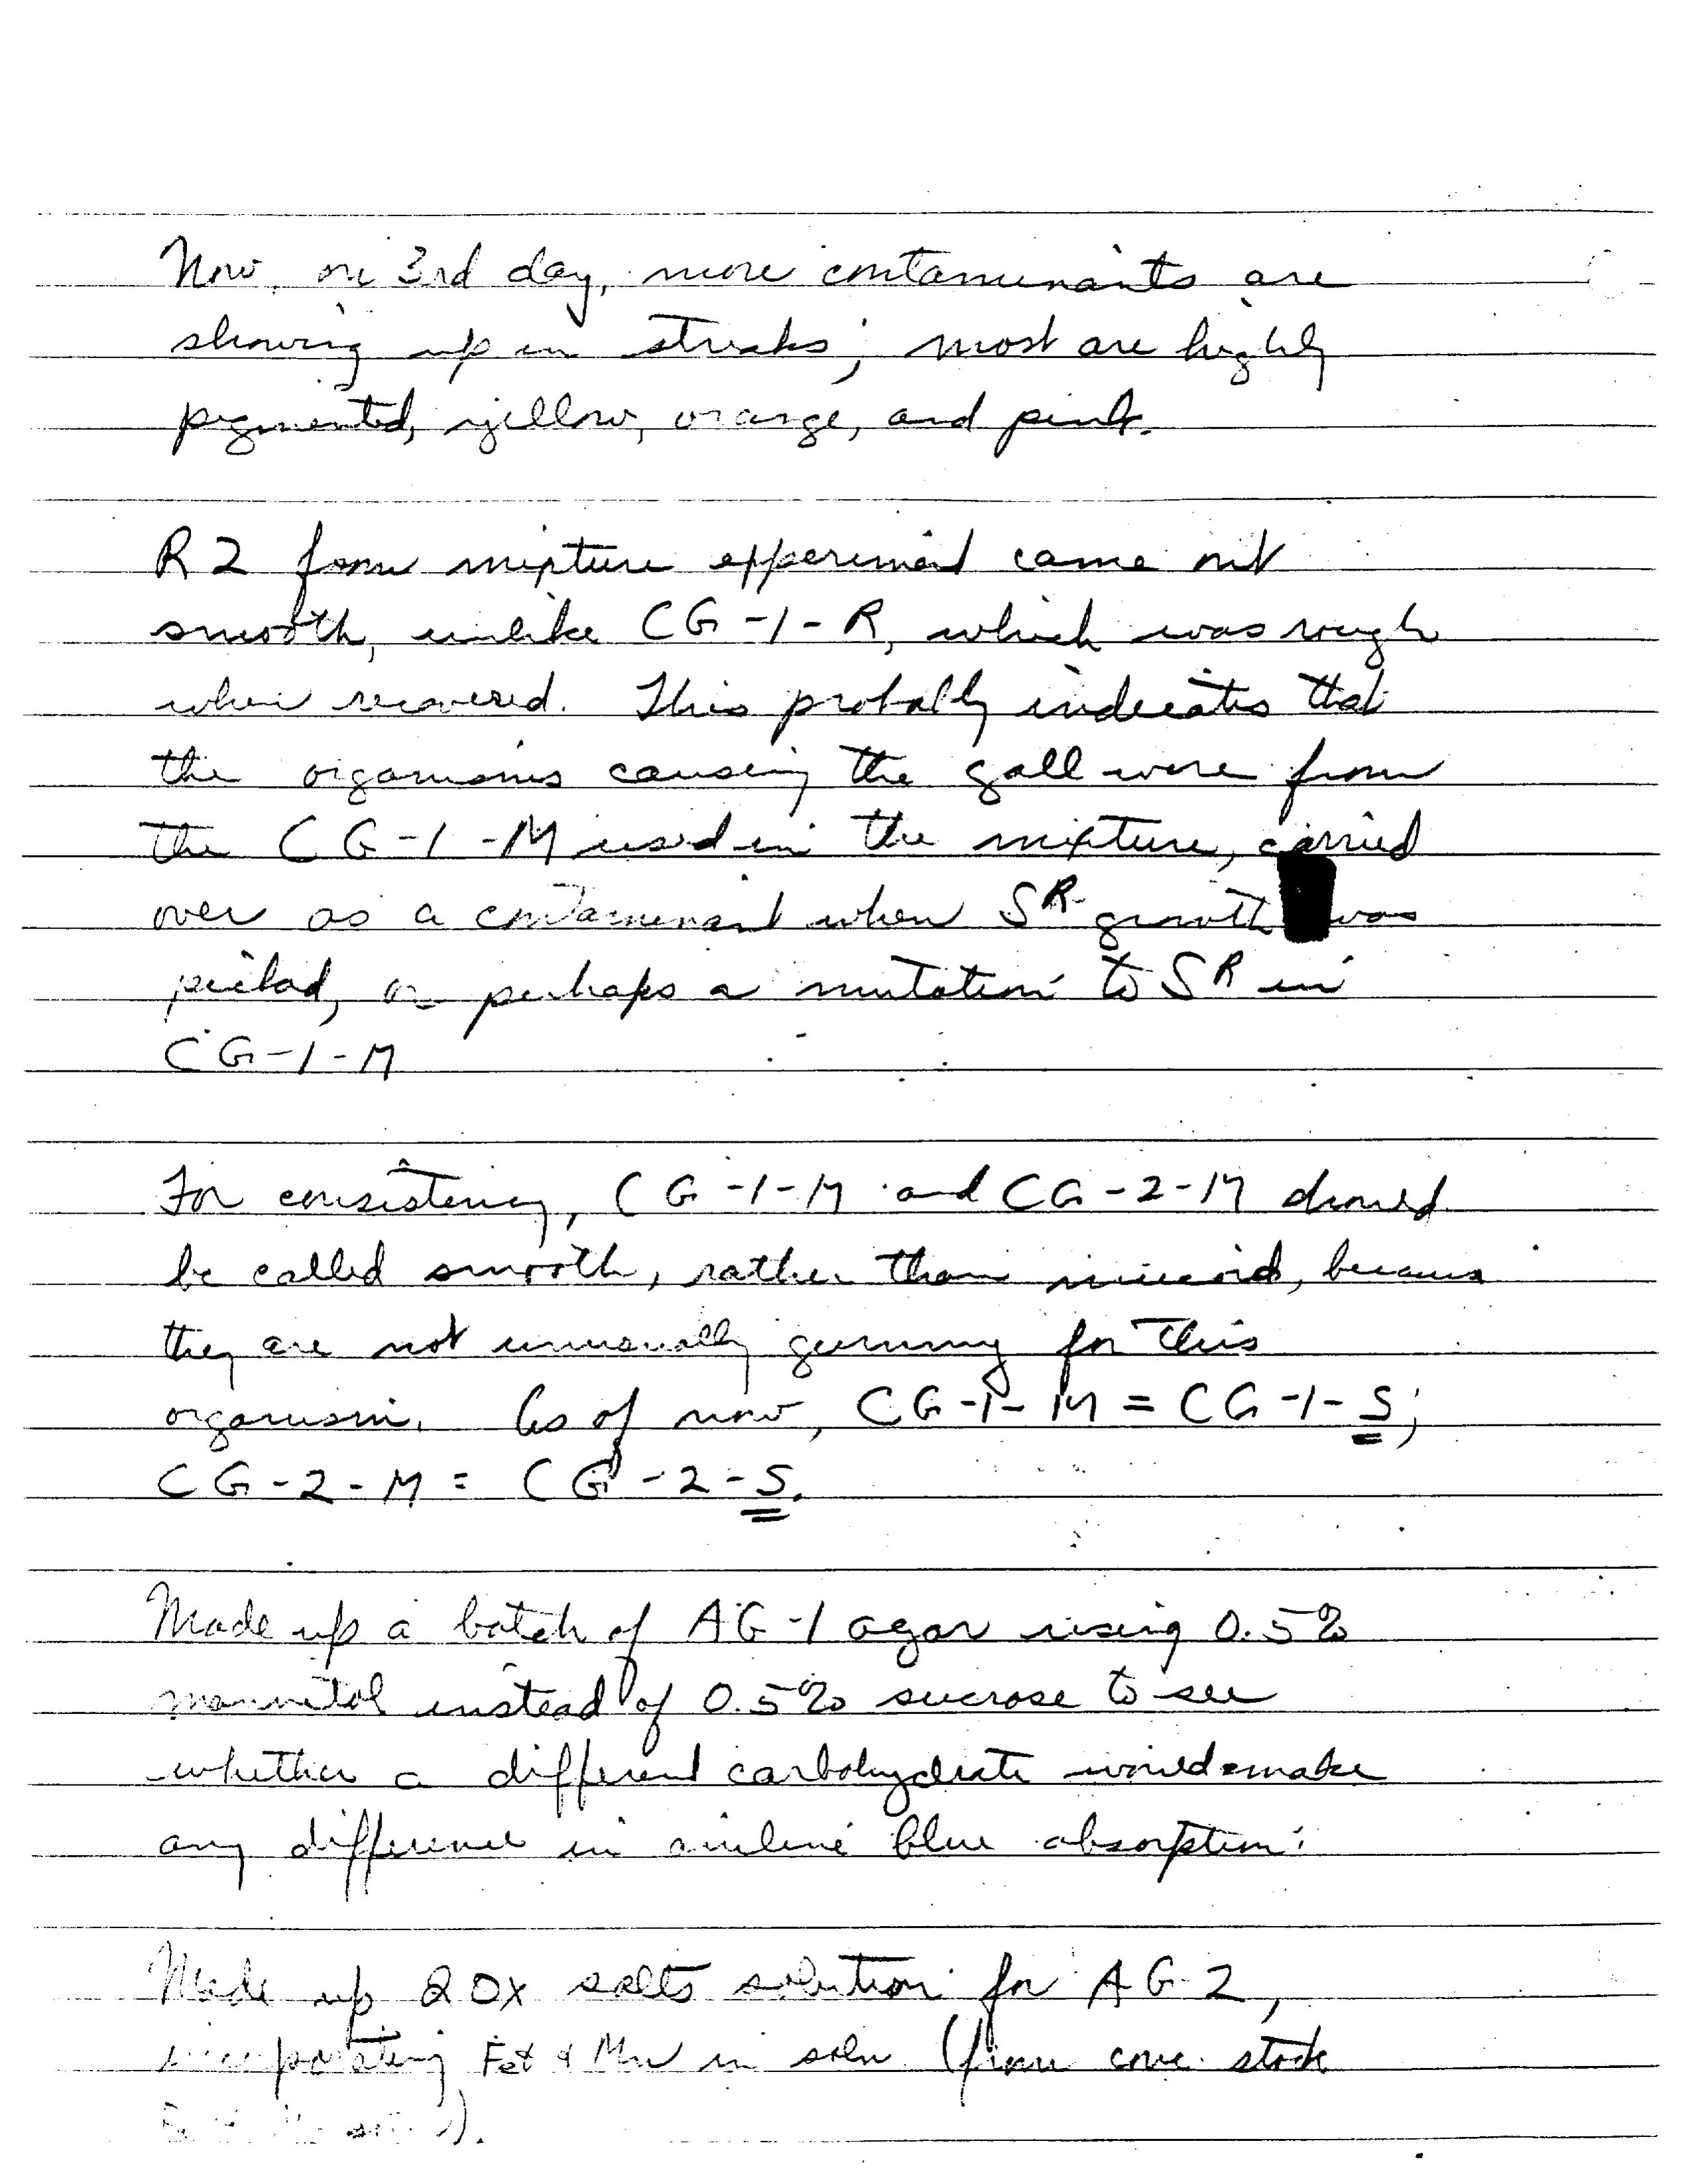 Now, on 3rd day, more contaminants are
showing up in streaks; most are highly
pigmented, yellow, orange, and pink.
R2 from mixture experiment came out
smooth, unlike CG-1-R, which was rough
when recovered. This probably indicates that
the organisms causing the gall were from
the CG-1-M used in the mixture, carried
over as a contaminant when S^R growth was
picked, or perhaps a mutation to S^R in
CG-1-M
For consistency, CG-1-M and CG-2-M should
be called smooth, rather than mucoid, because
they are not unusually gummy for this
organism. As of now, CG-1-M = CG-1-S;
CG-2-M = CG-2-S.
Made up a batch of AG-1 agar using 0.5%
mannitol instead of 0.5% sucrose to see
whether a different carbohydrate would make
any difference in aniline blue absorption.
Made up 20x salts solution for AG-2,
incorporating Fe & Mn in soln (from conc. stock